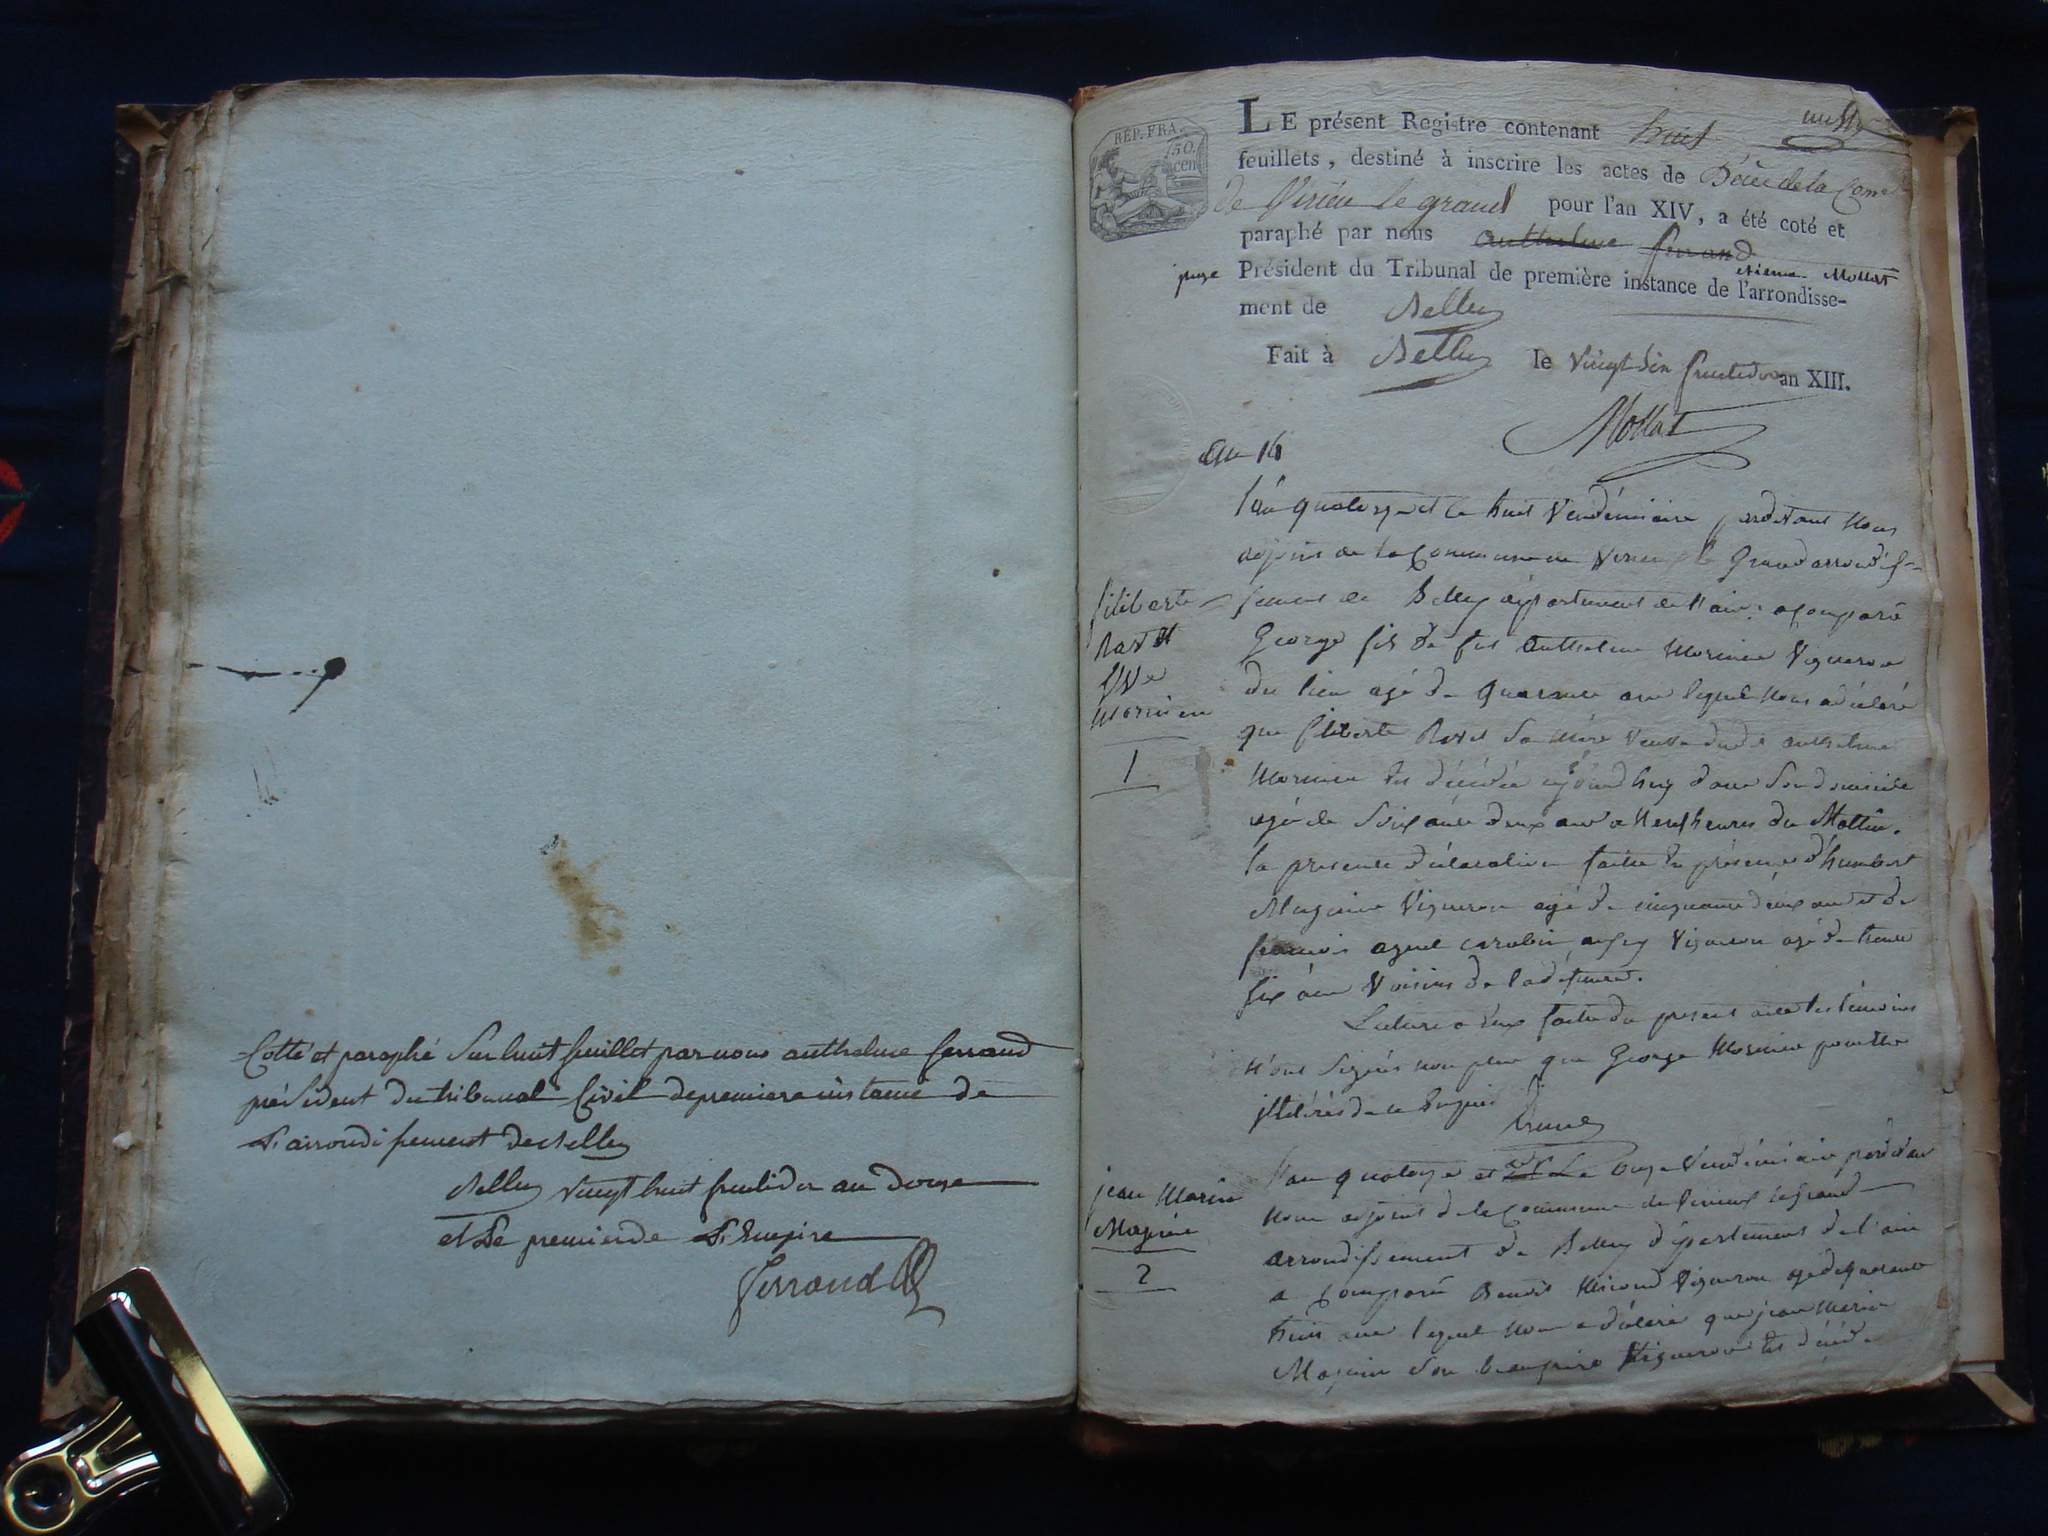 Cotté et paraphé Sur huit feuillet par nous anthelme ferrand
président du tribunal Civil de premiere instance de
L'arrondissement de Belley
Belley vingt huit fructidor an douze
et Le premier de L'Empire
Ferrand
REP. FRA.
50.
cen
LE présent Registre contenant huit
feuillets, destiné à inscrire les actes de Décès de la Com
de Virieu le grand pour l'an XIV, a été coté et
paraphé par nous anthelme ferrand
etienne Mollat
juge Président du Tribunal de première instance de l'arrondisse-
ment de Belley
Fait à Belley le vingt six fructidor an XIII.
Mollat
an 14
l'an quatorze et le huit Vendémiaire pardevant Nous
adjoint de la Commune de Virieu le Grand arrondis-
sement de Belley département de l'ain a comparu
George fils de feu Anthelme Morinin Vigneron
du lieu agé de quarante ans lequel Nous a déclaré
que filiberte Ravet Sa Mère Veuve dudit anthelme
Morinin est décédée aujourd'huy dans Son domicile
agé de Soixante deux ans a Neuf heures du Mattin.
la presente déclaration faitte en présence d'humbert
Magnin Vigneron agé de cinquante deux ans et de
francois Vigneron agé de trente
six ans Voisins de la defunte.
Lecture a Eux faitte du present acte les témoins
N'ont Signés non plus que George Morinin pour être
illitérés de ce Enquis
filiberte
Ravet
Vve
Morinin
1
l'an quatorze et le onze Vendémiaire pardevant
Nous adjoint de la Commune de Virieux le Grand
arrondissement de Belley département de l'ain
a Comparu Benoit Vigneron agé de quarante
huit ans lequel Nous a déclaré que jean Marie
Magnin Son beaupère Vigneron est décédé
jean Marie
Magnin
2